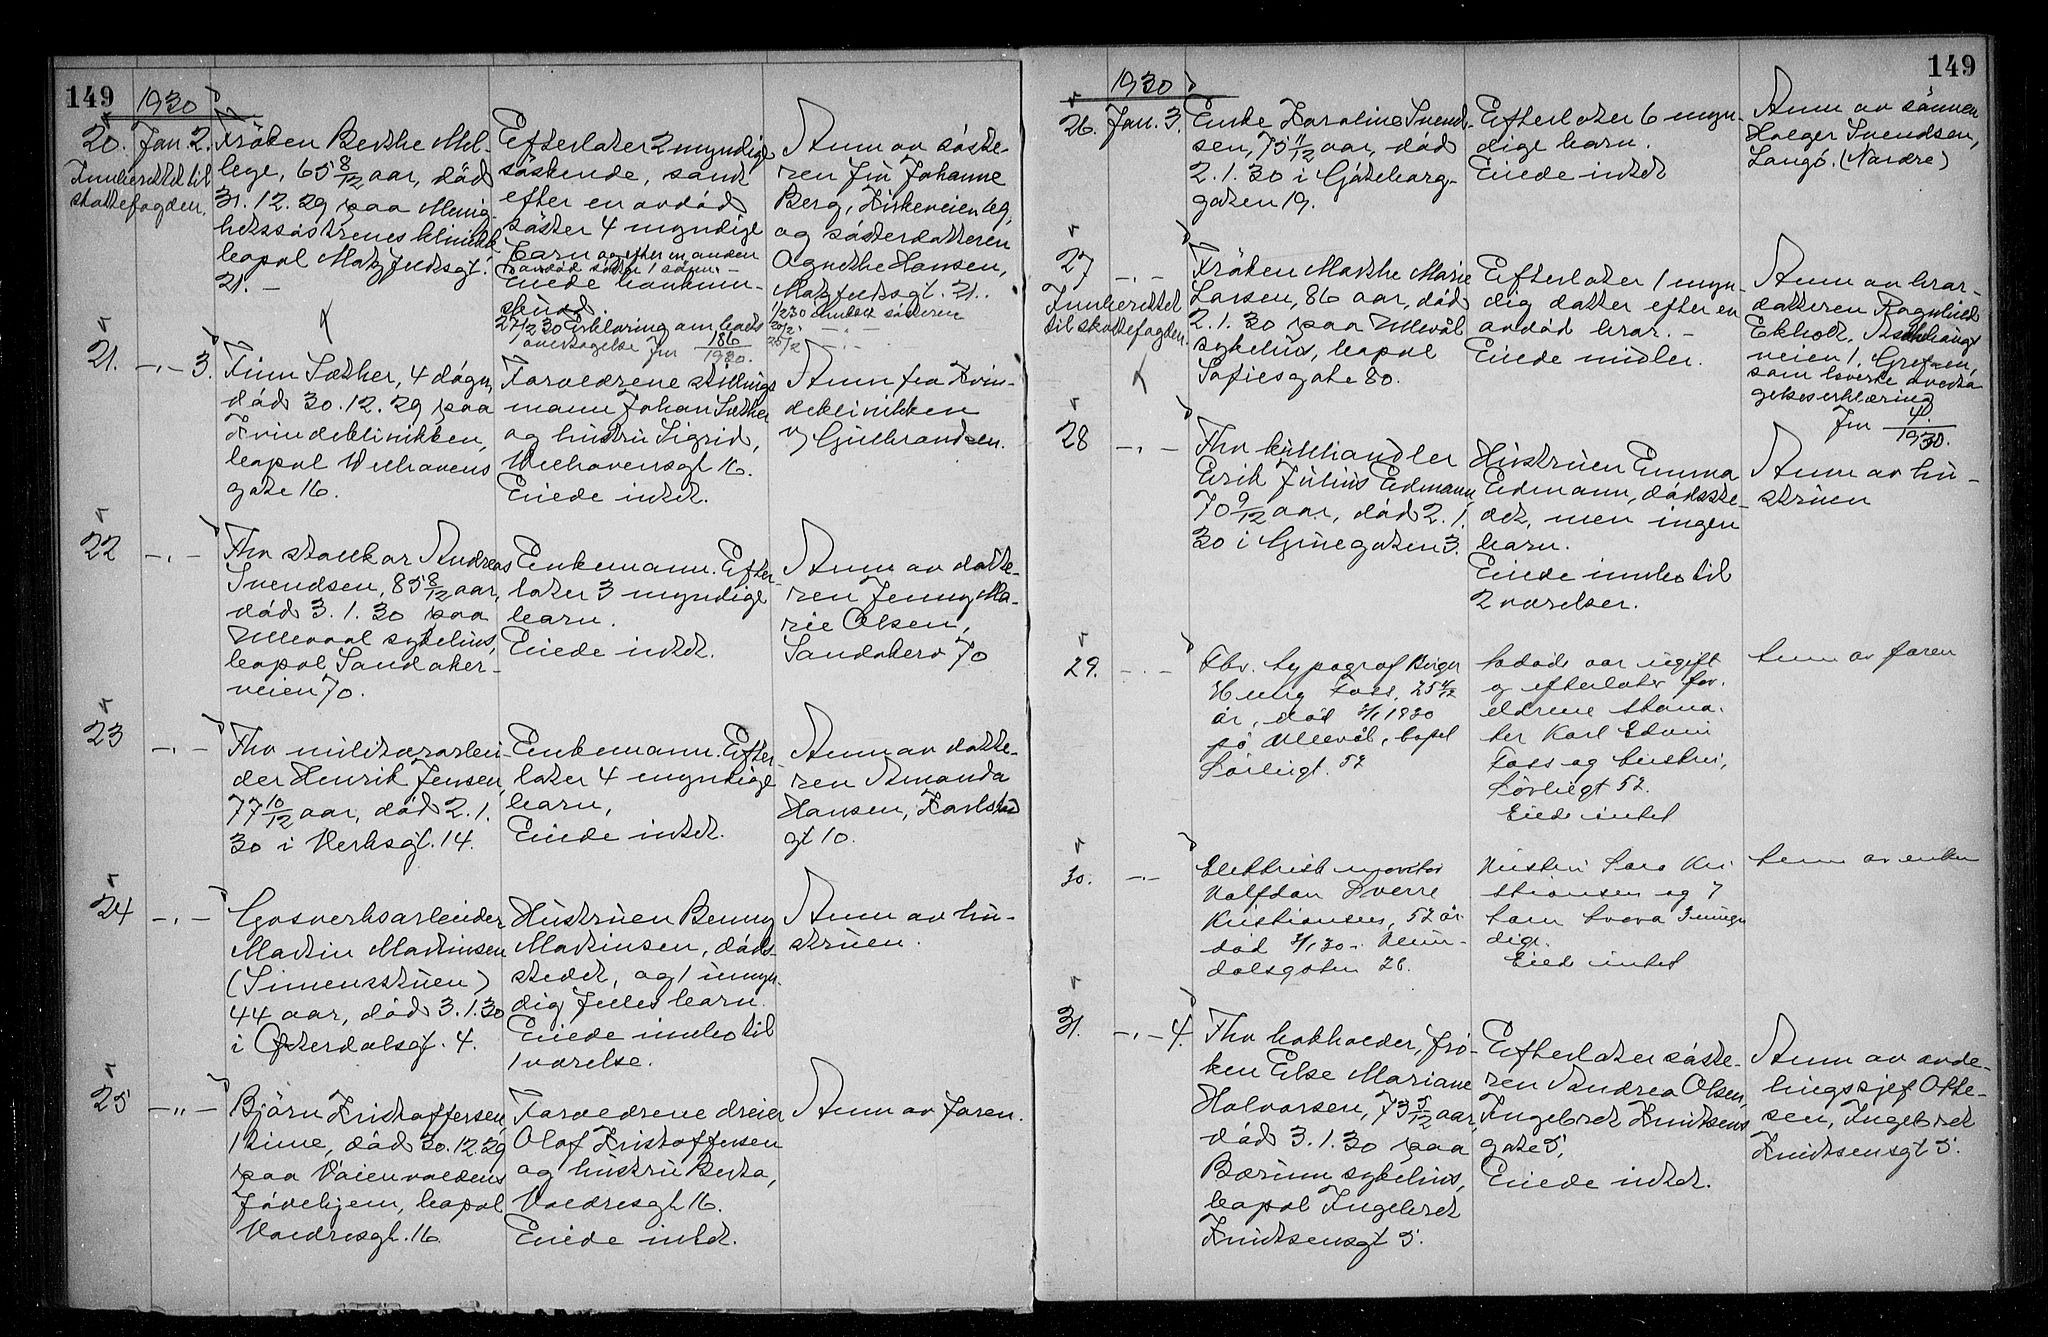 149
1930
20. Jan. 2.
Innberettet til
skattefogden.
Fröken Berthe Mel-
lege, 65 8/12 aar, död
31.12.29 paa Menig-
hetssöstrenes klinikk
bopel
21. –
Efterlater 2 myndige
söskende, samt
efter en avdöd
söster 4 myndige
barn og efter en anden
avdöd söster 1 sönn. –
Eiede bankinn-
skudd.
27/2 30 Erklæring om boets
overtagelse Jnr 186/1930.
Anm av söste-
ren fru Johanne
Berg, Kirkeveien 69,
og sösterdatteren
Agnethe Hansen,
21.
1/2 30 sösteren
21. –„– 3.
Finn Sæther, 4 dögn,
död 30.12.29 paa
Kvindeklinikken,
bopel Welhavens
gate 16.
Forældrene stillings
mann Johan Sæther
og hustru Sigrid,
Welhavensgt 16.
Eiede intet.
Anm fra Kvin-
deklinikken
v/ Gulbrandsen.
22 –„–
Fhv stallkar Andreas
Svendsen, 85 8/12 aar,
död 3.1.30 paa
Ullevaal sykehus,
bopel Sandaker-
veien 70.
Enkemann. Efter-
later 3 myndige
barn.
Eiede intet.
Anm av datte-
ren Jenny Ma-
rie Olsen,
Sandakerv 70
23 –„–
Fhv militærarbei-
der Henrik Jensen,
77 10/12 aar, död 2.1.
30 i Verksgt. 14.
Enkemann. Efter-
later 4 myndige
barn,
Eiede intet.
Anm av datte-
ren Amanda
Hansen, Karlstad
gt 10.
24 –„–
Gasverksarbeider
Martin Martinsen
(Simensstuen)
44 aar, död 3.1.30
i Österdalsgt. 4.
Hustruen Benny
Martinsen, döds-
stedet, og 1 umyn-
dig felles barn.
Eiede innbo til
1 værelse.
Anm av hu-
struen.
25 –„–
Björn Kristoffersen,
1 time, död 30.12.29
paa Vaienvoldens
födehjem, bopel
Valdresgt. 16
Forældrene dreier
Olaf Kristoffersen
og hustru Berta,
Valdresgt 16.
Eiede intet.
Anm av faren.
149
1930
26. Jan. 3.
Enke Karoline Svend-
sen, 75 11/12 aar, död
2.1.30 i Göteborg-
gaten 19.
Efterlater 6 myn-
dige barn.
Eiede intet
Anm av sönnen
Holger Svendsen,
Langö. (Nardre)
27 –„–
Innberettet
til skattefogden.
Fröken Marthe Marie
Larsen, 86 aar, död
2.1.30 paa Ullevål
sykehus, bopel
Sofiesgate 80.
Efterlater 1 myn-
dig datter efter en
avdöd bror. –
Eiede midler.
Anm av bror-
datteren Ragnhild
Ekholt,
veien 1, Grefsen,
som leverte overta
gelseserklæring
Jnr 4/1930.
28 –„–
Fhv kullhandler
Erik Julius Edmann,
70 9/12 aar, död 2.1.
30 i Grünegaten 3.
Hustruen Emma
Edmann, dödsste-
det, men ingen
barn.
Eiede innbo til
2 værelser.
Anm av hu-
struen
29. –„–
Fhv. typograf Birger
Foss, 25 4/12
år, död 2/1 1930
på Ullevål, bopel
Sörligt. 52
Avdöde var ugift
og efterlater for-
eldrene
Karl Edvin
Foss og hustru,
Sörligt 52.
Eiede intet
Anm av faren
30. –„–
Elektrisk montör
Halfdan Sverre
Kristiansen, 52 år
död 2/1 30 i Heim-
dalsgaten 26.
Hustru Sara Kri
stiansen og 7
barn hvorav 3 umyn
dige.
Eiede intet
Anm av enken
31. –„– 4.
Fhv bokholder, frö-
ken Else Mariane
Halvorsen, 73 5/12 aar,
död 3.1.30 paa
Bærum sykehus,
bopel Ingebret
Knudsensgt 5.
Efterlater söste-
ren Andrea Olsen,
Ingebret Knudsens
gate 5.
Eiede intet.
Anm av avde-
lingssjef Otte-
sen, Ingebret
Knudsensgt 5.